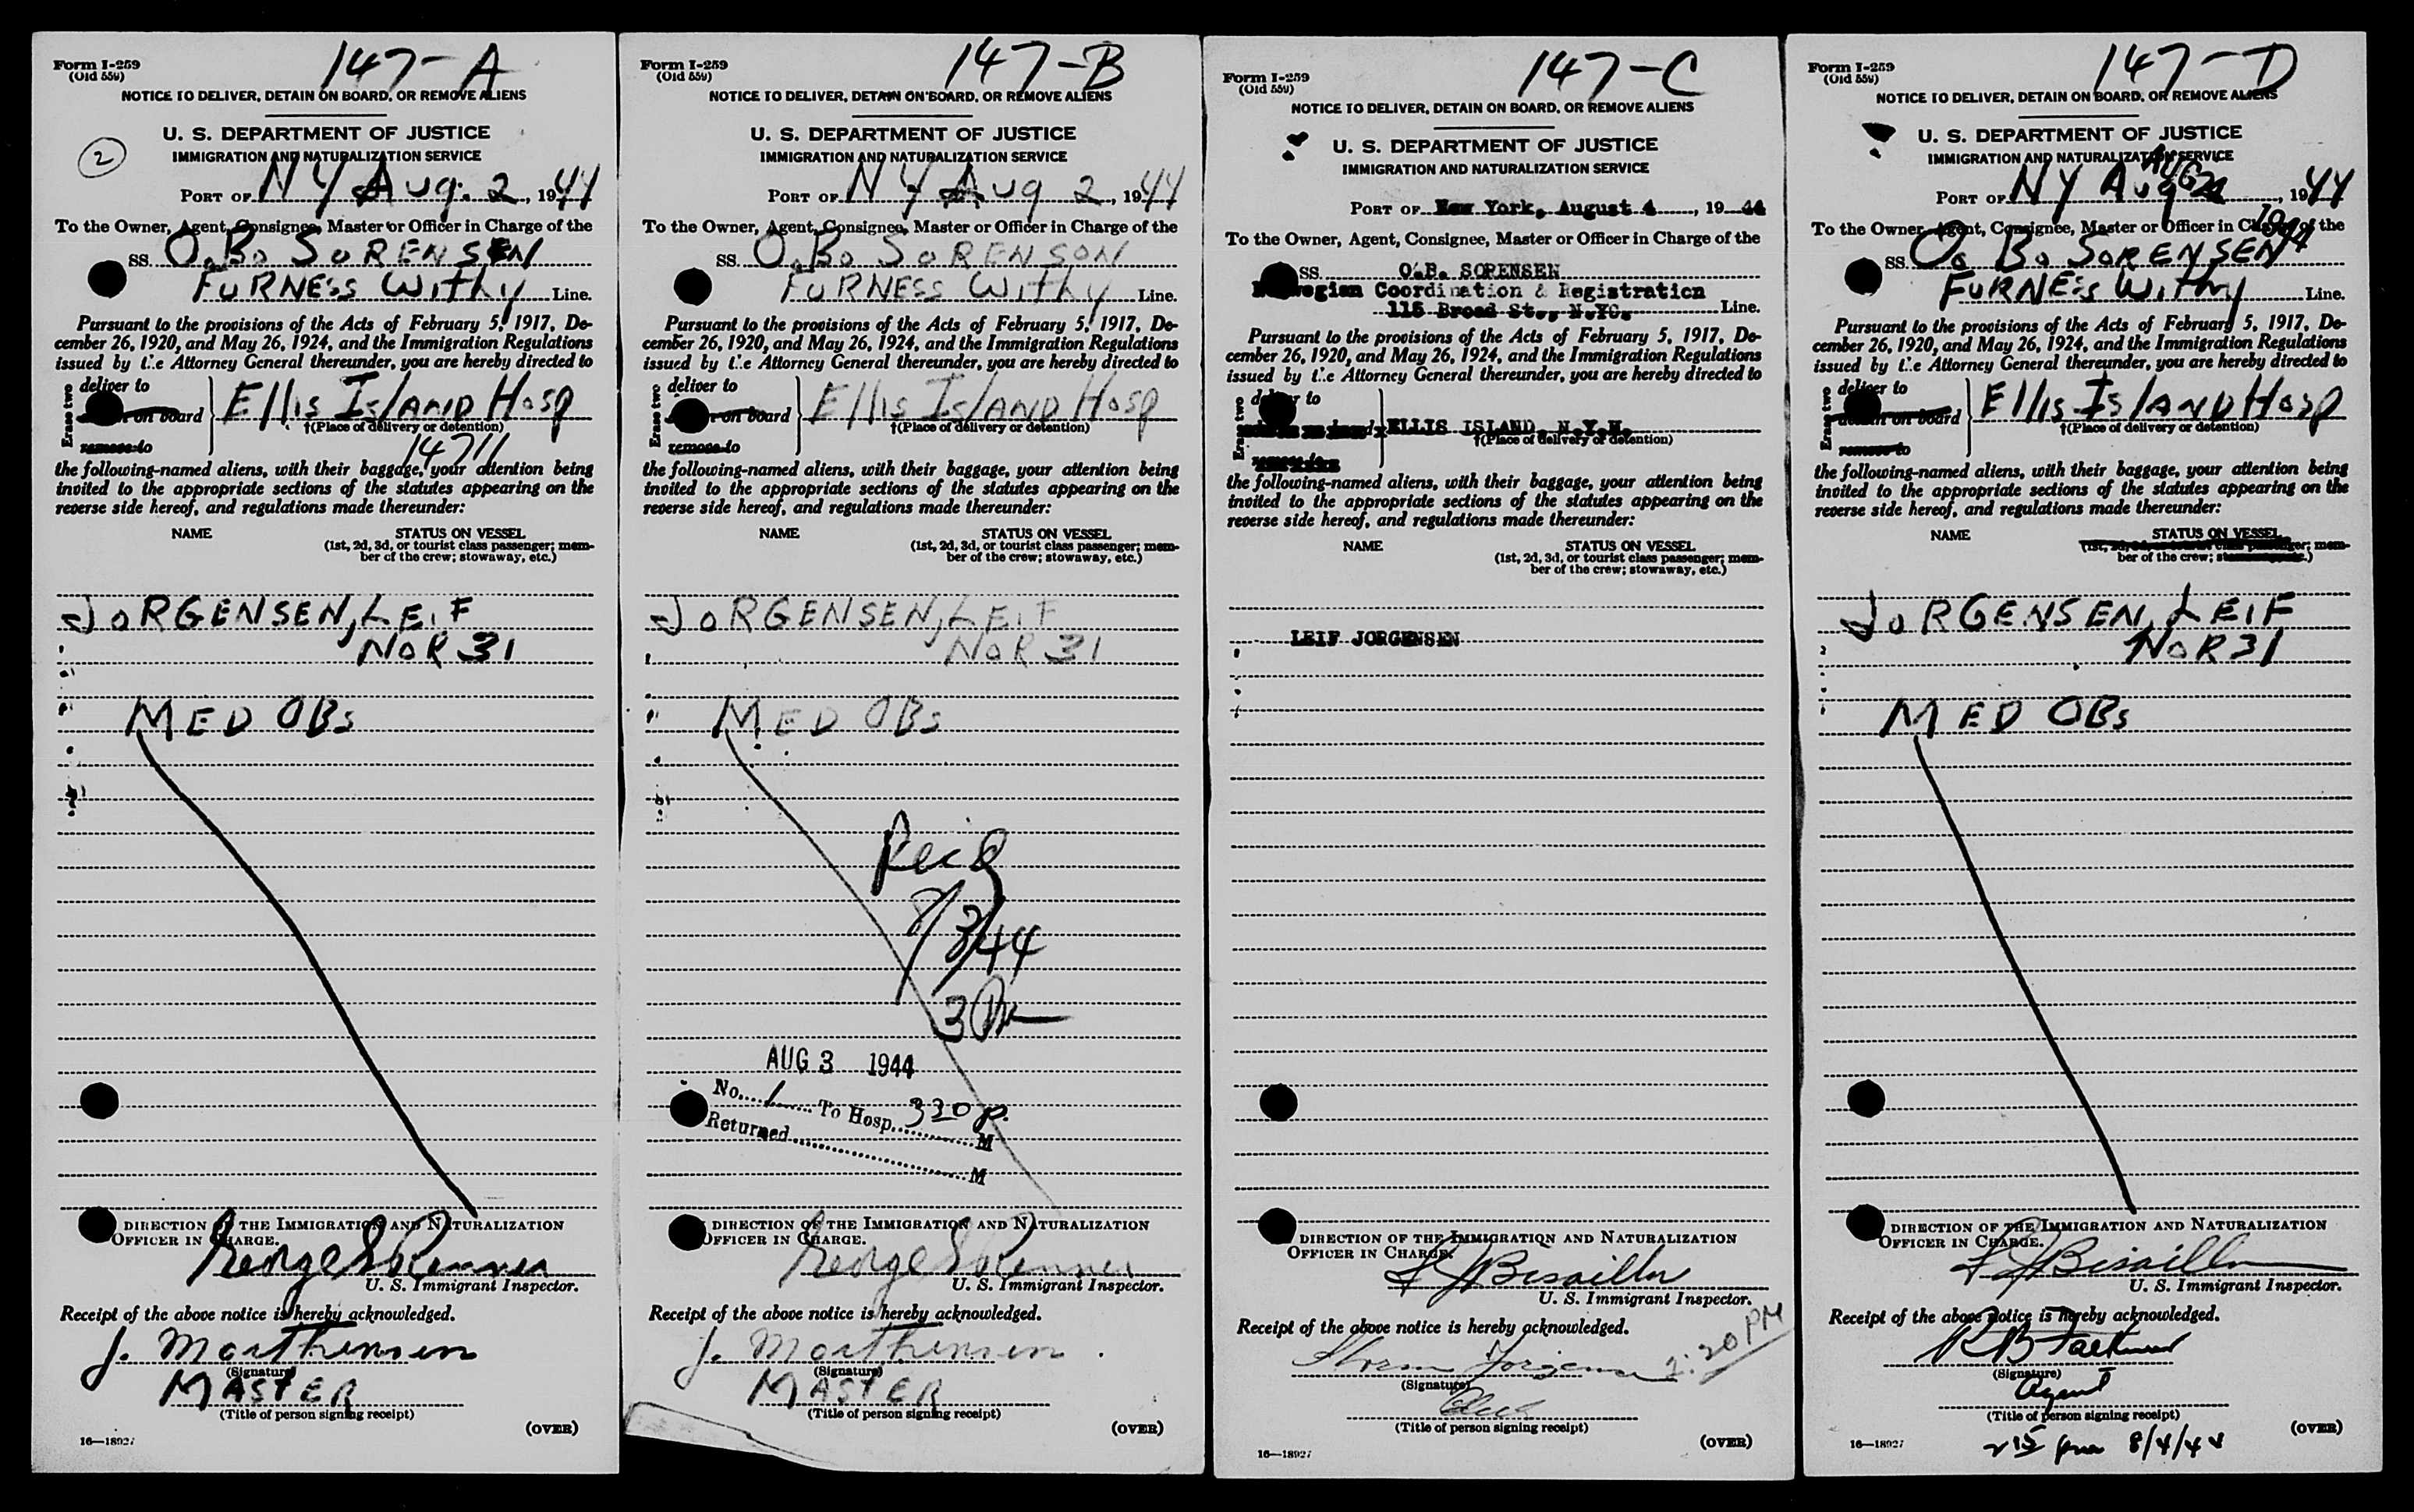 147-A
Form I-259
(Old 559)
NOTICE TO DELIVER, DETAIN ON BOARD, OR REMOVE ALIENS
U. S. DEPARTMENT OF JUSTICE
2
IMMIGRATION AND NATURALIZATION SERVICE
PORT OF NY Aug. 2, 1944
To the Owner, Agent, Consignee, Master or Officer in Charge of the
SS. O.B. SORENSEN
FURNESS WITHY Line.
Pursuant to the provisions of the Acts of February 5, 1917, De-
cember 26, 1920, and May 26, 1924, and the Immigration Regulations
issued by the Attorney General thereunder, you are hereby directed to
Erase two
deliver to
on board
remove to
Ellis ISLAND Hosp
†(Place of delivery or detention)
14711
the following-named aliens, with their baggage, your attention being
invited to the appropriate sections of the statutes appearing on the
reverse side hereof, and regulations made thereunder:
NAME STATUS ON VESSEL
(1st, 2d, 3d, or tourist class passenger; mem-
ber of the crew; stowaway, etc.)
JORGENSEN, LEIF
NOR 31
MED OBS
DIRECTION OF THE IMMIGRATION AND NATURALIZATION
OFFICER IN CHARGE.
George S Renner
U. S. Immigrant Inspector.
Receipt of the above notice is hereby acknowledged.
J. Morthensen
(Signature)
MASTER
(Title of person signing receipt)
(OVER)
16—18927
147-B
Form I-259
(Old 559)
NOTICE TO DELIVER, DETAIN ON BOARD, OR REMOVE ALIENS
U. S. DEPARTMENT OF JUSTICE
IMMIGRATION AND NATURALIZATION SERVICE
PORT OF NY Aug 2, 1944
To the Owner, Agent, Consignee, Master or Officer in Charge of the
SS. O.B. SORENSON
FURNESS WITHY Line.
Pursuant to the provisions of the Acts of February 5, 1917, De-
cember 26, 1920, and May 26, 1924, and the Immigration Regulations
issued by the Attorney General thereunder, you are hereby directed to
Erase two
deliver to
on board
remove to
Ellis ISLAND Hosp
†(Place of delivery or detention)
the following-named aliens, with their baggage, your attention being
invited to the appropriate sections of the statutes appearing on the
reverse side hereof, and regulations made thereunder:
NAME STATUS ON VESSEL
(1st, 2d, 3d, or tourist class passenger; mem-
ber of the crew; stowaway, etc.)
JORGENSEN, LEIF
NOR 31
MED OBS
Rec'd
8/3/44
3 PM
AUG 3 1944
No. 1 To Hosp. 330 p. M
Returned M
DIRECTION OF THE IMMIGRATION AND NATURALIZATION
OFFICER IN CHARGE.
George S Renner
U. S. Immigrant Inspector.
Receipt of the above notice is hereby acknowledged.
J. Morthensen
(Signature)
MASTER
(Title of person signing receipt)
(OVER)
147-C
Form I-259
(Old 559)
NOTICE TO DELIVER, DETAIN ON BOARD, OR REMOVE ALIENS
U. S. DEPARTMENT OF JUSTICE
IMMIGRATION AND NATURALIZATION SERVICE
PORT OF New York, August 4, 1944
To the Owner, Agent, Consignee, Master or Officer in Charge of the
SS. O.B. SORENSEN
Norwegian Coordination & Registration
115 Broad St., N.YC. Line.
Pursuant to the provisions of the Acts of February 5, 1917, De-
cember 26, 1920, and May 26, 1924, and the Immigration Regulations
issued by the Attorney General thereunder, you are hereby directed to
Erase two
deliver to
remove to
ELLIS ISLAND, N.Y.H.
†(Place of delivery or detention)
the following-named aliens, with their baggage, your attention being
invited to the appropriate sections of the statutes appearing on the
reverse side hereof, and regulations made thereunder:
NAME STATUS ON VESSEL
(1st, 2d, 3d, or tourist class passenger; mem-
ber of the crew; stowaway, etc.)
LEIF JORGENSEN
DIRECTION OF THE IMMIGRATION AND NATURALIZATION
OFFICER IN CHARGE.
Bisaillon
U. S. Immigrant Inspector.
Receipt of the above notice is hereby acknowledged.
2:20 PM
(Signature)
Clerk
(Title of person signing receipt)
(OVER)
16—18927
147-D
Form I-259
(Old 559)
NOTICE TO DELIVER, DETAIN ON BOARD, OR REMOVE ALIENS
U. S. DEPARTMENT OF JUSTICE
IMMIGRATION AND NATURALIZATION SERVICE
PORT OF NY Aug 2, 1944
To the Owner, Agent, Consignee, Master or Officer in Charge of the
SS. O. B. SORENSEN
FURNESS WITHY Line.
Pursuant to the provisions of the Acts of February 5, 1917, De-
cember 26, 1920, and May 26, 1924, and the Immigration Regulations
issued by the Attorney General thereunder, you are hereby directed to
Erase two
deliver to
on board
remove to
Ellis ISLAND Hosp
†(Place of delivery or detention)
the following-named aliens, with their baggage, your attention being
invited to the appropriate sections of the statutes appearing on the
reverse side hereof, and regulations made thereunder:
NAME STATUS ON VESSEL
(1st, 2d, 3d, or tourist class passenger; mem-
ber of the crew; stowaway, etc.)
JORGENSEN, LEIF
NOR 31
MED OBS
DIRECTION OF THE IMMIGRATION AND NATURALIZATION
OFFICER IN CHARGE.
Bisaillon
U. S. Immigrant Inspector.
Receipt of the above notice is hereby acknowledged.
(Signature)
Agent
(Title of person signing receipt)
(OVER)
16—18927
2 15 pm 8/4/44